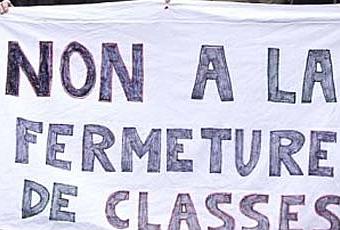 NON A LA
FERMETURE
DE CLASSES